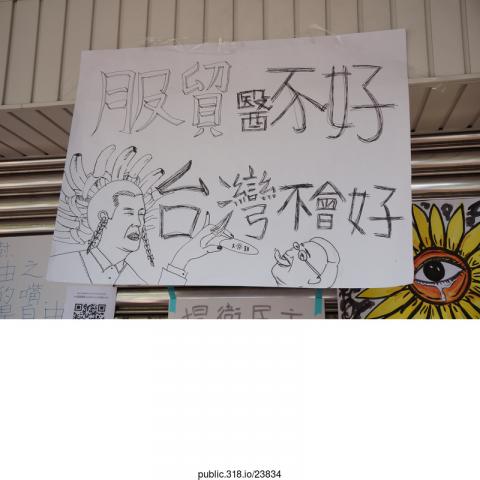 服貿醫不好
台灣不會好
捍衛民主
public.318.io/23834